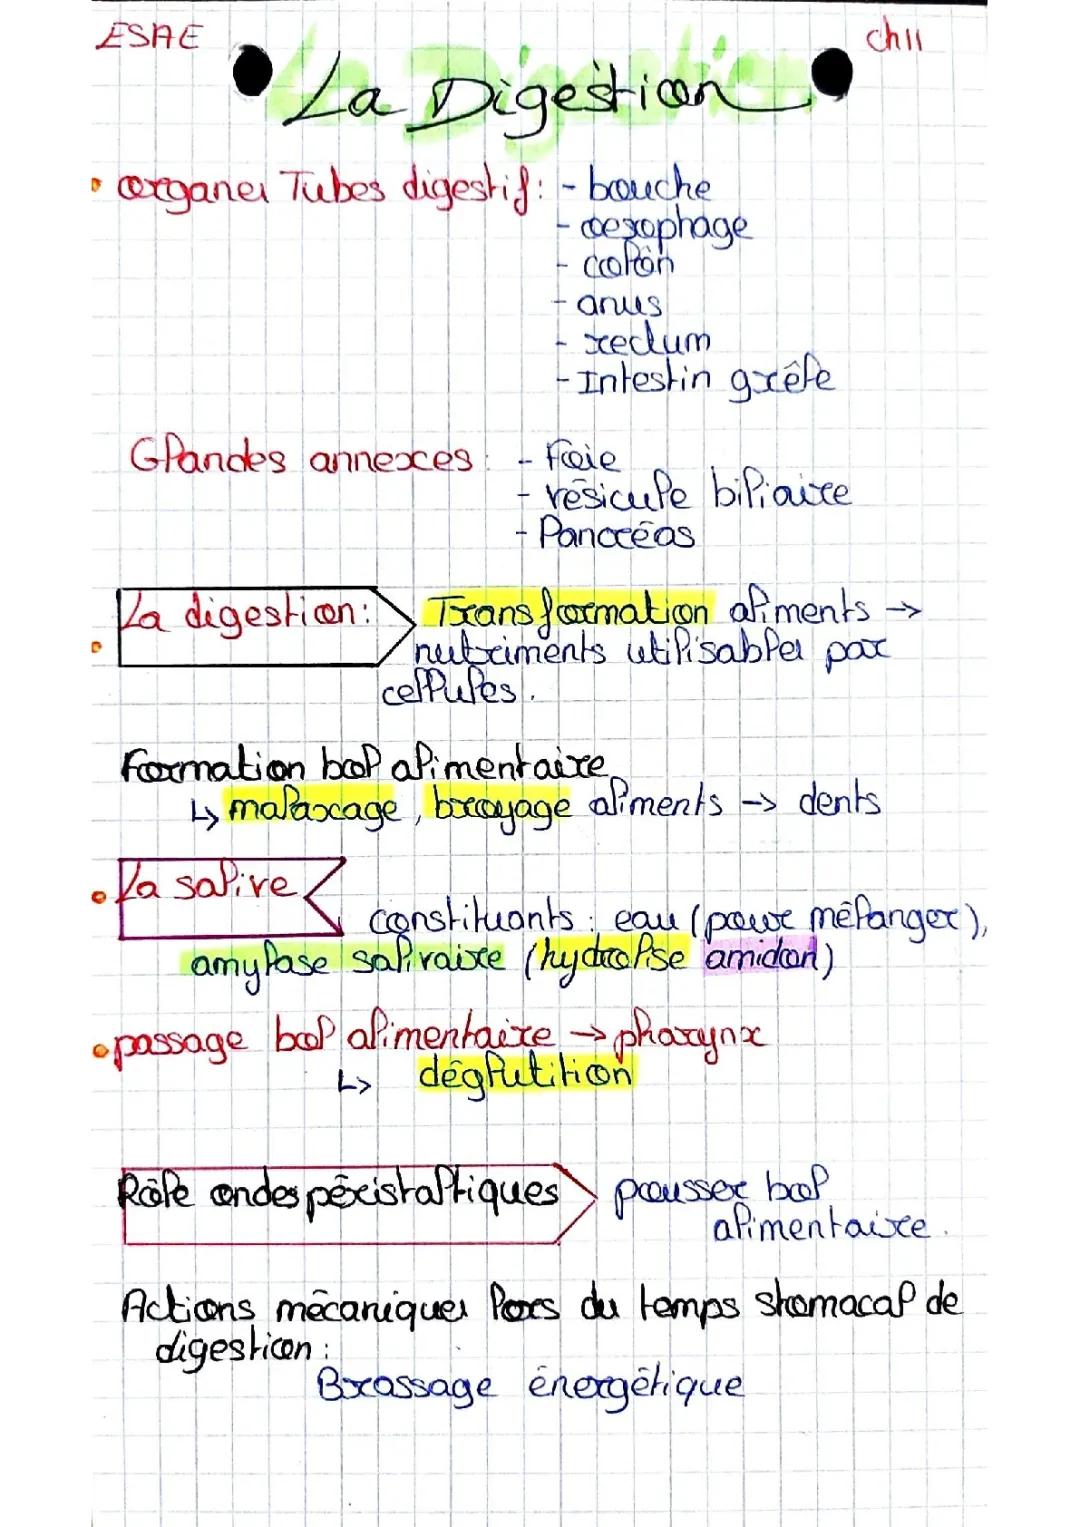 ESAE
ch11
La Digestion
organes Tubes digestif: - bouche
- oesophage
- colon
- anus
- rectum
- Intestin grêle
Glandes annexes: - Foie
- vésicule biliaire
- Pancréas
La digestion: Transformation aliments →
nutriments utilisables par
cellules.
Formation bol alimentaire
↳ malaxage, broyage aliments → dents
La salive
constituants: eau (pour mélanger),
amylase salivaire (hydrolise amidon)
passage bol alimentaire → pharynx
↳ déglutition
Rôle ondes péristaltiques pousser bol
alimentaire.
Actions mécaniques lors du temps stomacal de
digestion:
Brassage énergétique